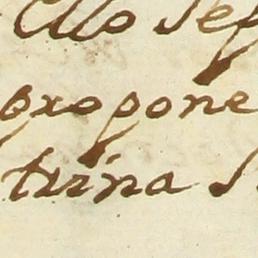 ello se
propone
trina